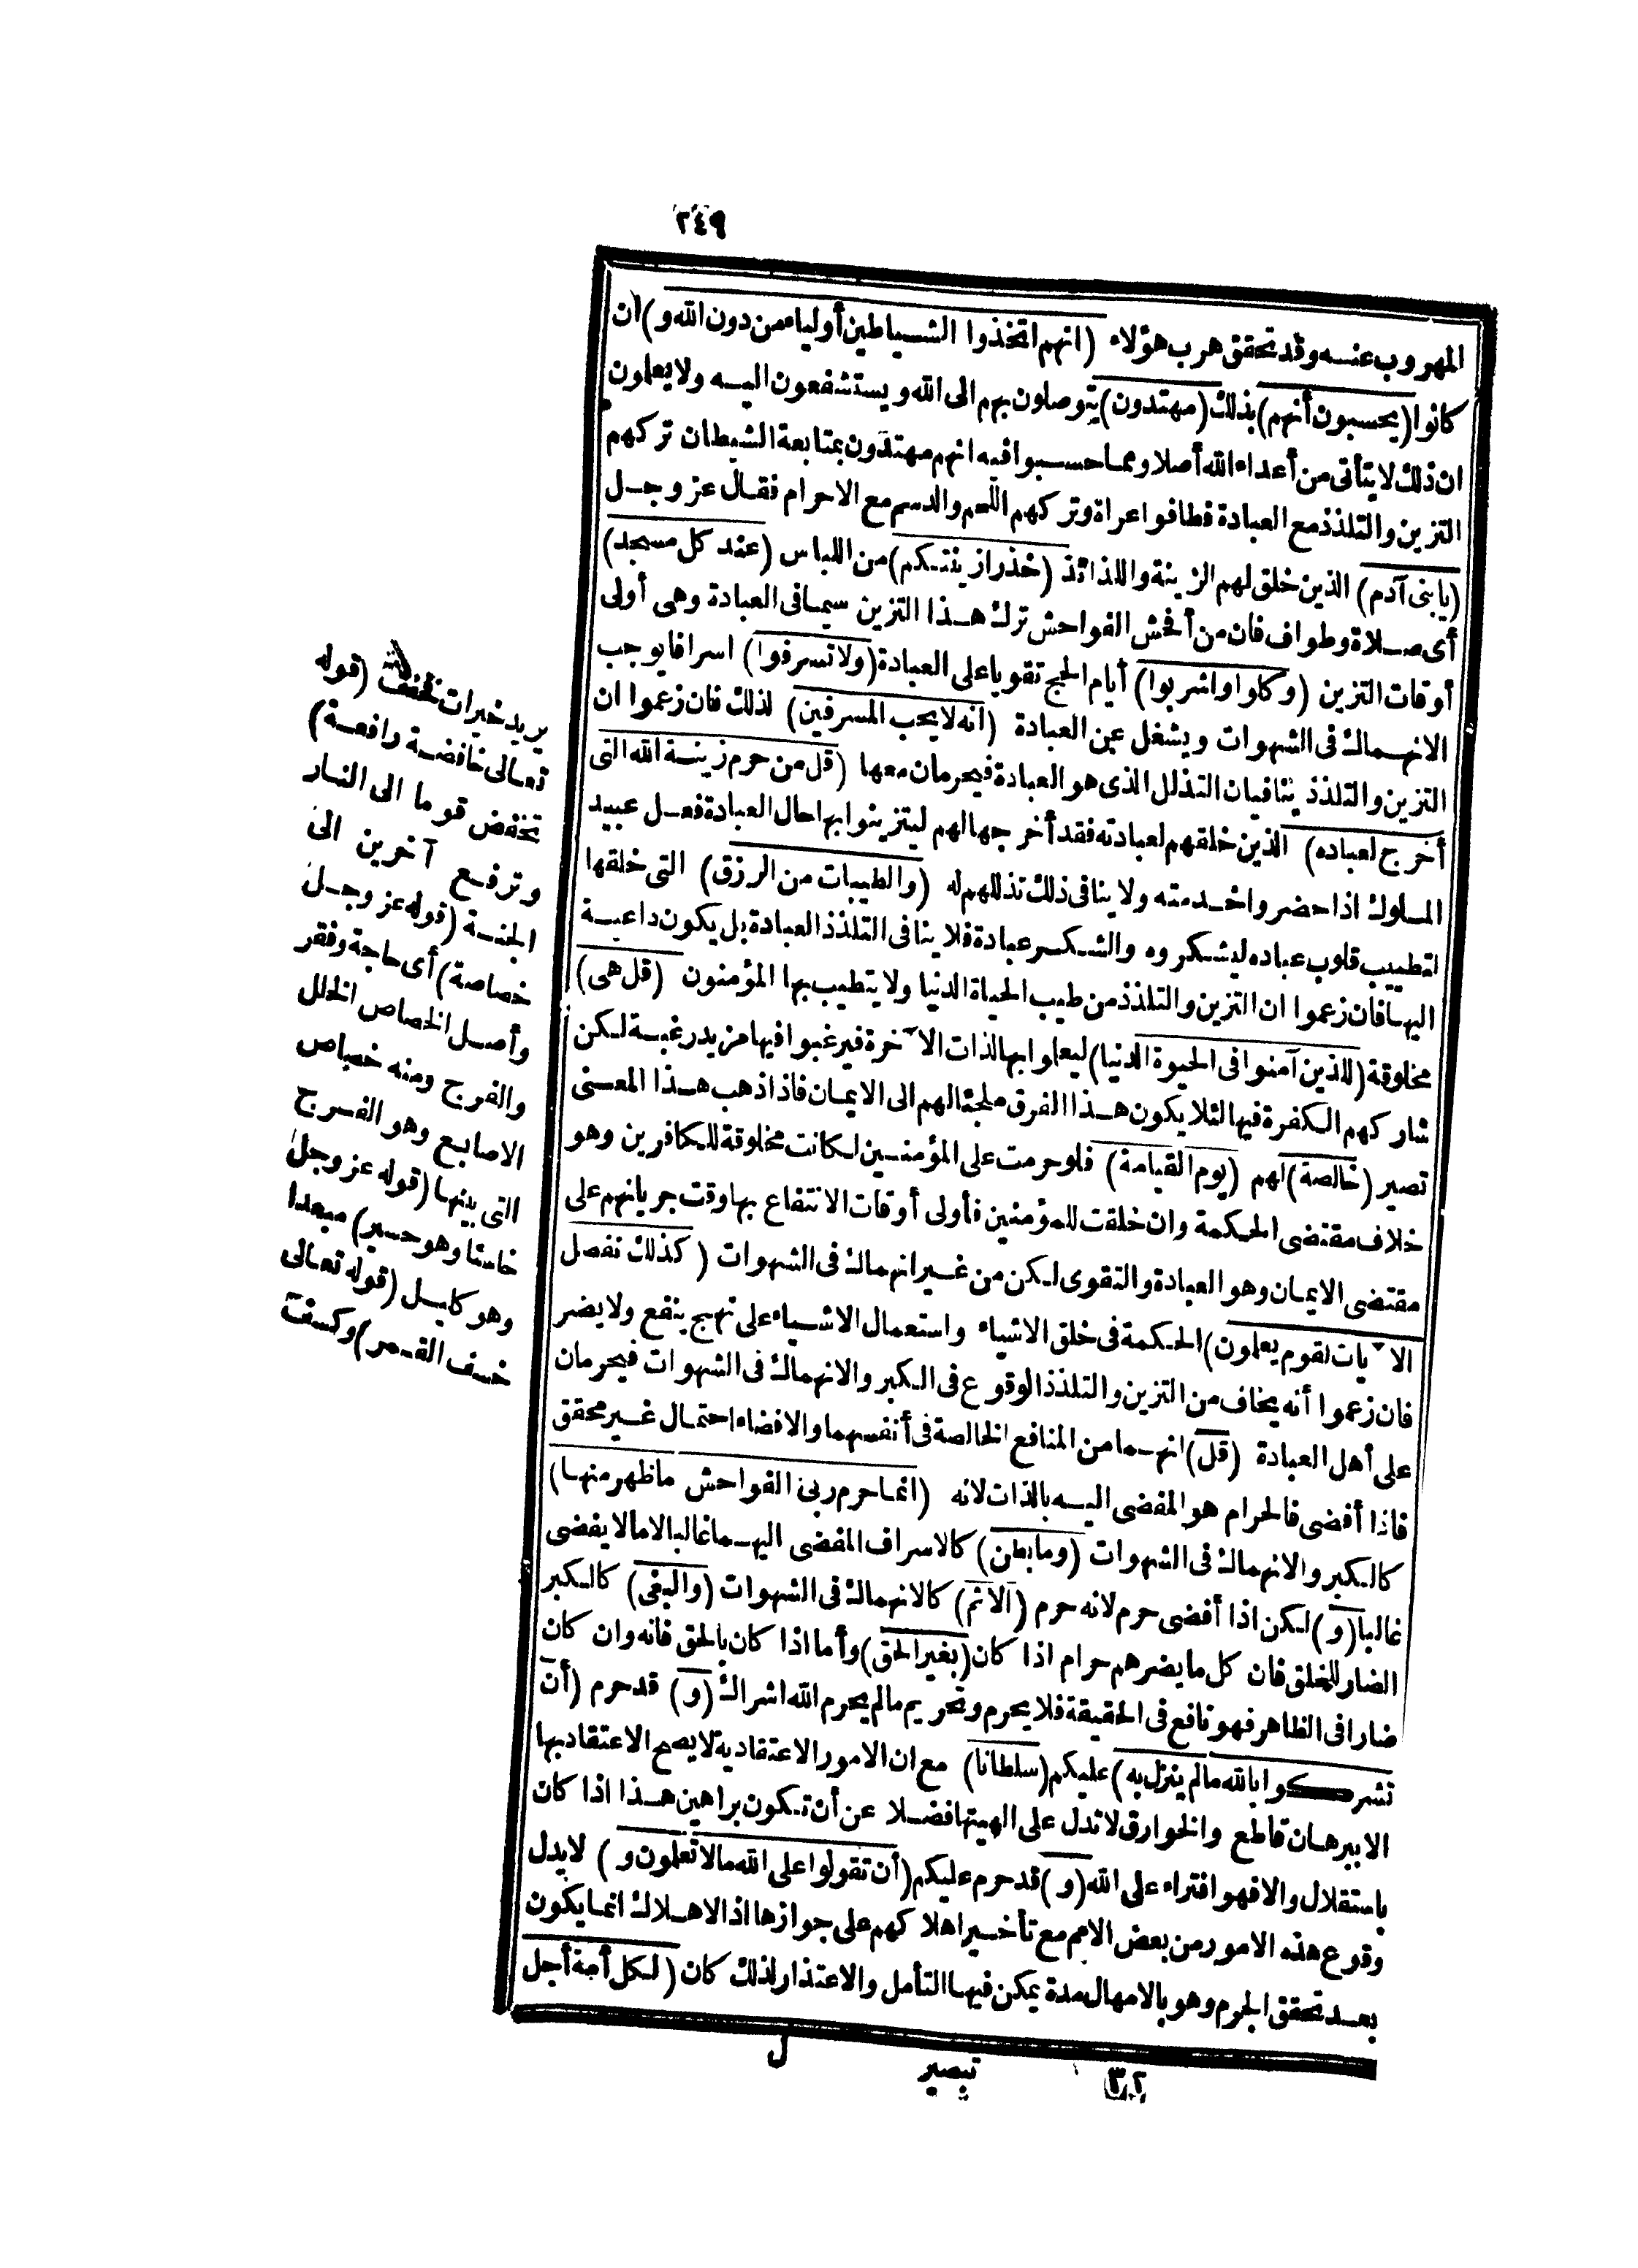 ٢٤٩
المهروب عنه وقد تحقق هرب هؤلاء (انهم اتخذوا الشياطين أولياء من دون الله و) ان
كانوا (يحسبون أنهم) بذلك (مهتدون) يتوصلون بهم الى الله ويستشفعون اليه ولا يعلمون
ان ذلك لا يتأتى من أعداء الله أصلا ومما حسبوا فيه انهم مهتدون بمتابعة الشيطان تركهم
التزين والتلذذ مع العبادة فطافوا عراة وتركهم اللحم والدسم مع الاحرام فقال عز وجل
(يا بنى آدم) الذين خلق لهم الزينة واللذائذ (خذوا زينتكم) من اللباس (عند كل مسجد)
أى صلاة وطواف فان من أفحش الفواحش ترك هذا التزين سيما فى العبادة وهى أولى
أوقات التزين (وكلوا واشربوا) أيام الحج تقويا على العبادة (ولا تسرفوا) اسرافا يوجب
الانهماك فى الشهوات ويشغل عن العبادة (انه لا يحب المسرفين) لذلك فان زعموا ان
التزين والتلذذ ينافيان التذلل الذى هو العبادة فيحرمان معها (قل من حرم زينة الله التى
أخرج لعباده) الذين خلقهم لعبادته فقد أخرجها لهم ليتزينوا بها حال العبادة فعل عبيد
الملوك اذا حضر واخدمته ولا ينافى ذلك تذللهم له (والطيبات من الرزق) التى خلقها
لتطييب قلوب عباده ليشكروه والشكر عبادة فلا ينافى التلذذ العبادة بل يكون داعية
اليها فان زعموا ان التزين والتلذذ من طيب الحياة الدنيا ولا يتطيب بها المؤمنون (قل هى)
مخلوقة (للذين آمنوا فى الحيوة الدنيا) ليعلموا بها لذات الآخرة فيرغبوا فيها مزيد رغبة لكن
شاركهم الكفرة فيها لئلا يكون هذا الفرق ملجئا لهم الى الايمان فاذا ذهب هذا المعنى
تصير (خالصة) لهم (يوم القيامة) فلو حرمت على المؤمنين لكانت مخلوقة للكافرين وهو
خلاف مقتضى الحكمة وان خلقت للمؤمنين فأولى أوقات الانتفاع بها وقت جريانهم على
مقتضى الايمان وهو العبادة والتقوى لكن من غير انهماك فى الشهوات (كذلك نفصل
الآيات لقوم يعلمون) الحكمة فى خلق الاشياء واستعمال الاشياء على نهج ينفع ولا يضر
فان زعموا أنه يخاف من التزين والتلذذ الوقوع فى الكبر والانهماك فى الشهوات فيحرمان
على أهل العبادة (قل) انهما من المنافع الخالصة فى أنفسهما والافضاء احتمال غير محقق
فاذا أفضى فالحرام هو المفضى اليه بالذات لانه (انما حرم ربى الفواحش ما ظهر منها)
كالكبر والانهماك فى الشهوات (وما بطن) كالاسراف المفضى اليهما غالبا لا ما لا يفضى
غالبا (و) لكن اذا أفضى حرم لانه حرم (الاثم) كالانهماك فى الشهوات (والبغى) كالكبر
الضار للخلق فان كل ما يضرهم حرام اذا كان (بغير الحق) وأما اذا كان بالحق فانه وان كان
ضارا فى الظاهر فهو نافع فى الحقيقة فلا يحرم وتحريم مالم يحرم الله اشراك (و) قد حرم (أن
تشركوا بالله مالم ينزل به) عليكم (سلطانا) مع ان الامور الاعتقادية لا يصح الاعتقاد بها
الا ببرهان قاطع والخوارق لا تدل على الهيتها فضلا عن أن تكون براهين هذا اذا كان
باستقلال والا فهو افتراء على الله (و) قد حرم عليكم (أن تقولوا على الله مالا تعلمون و) لا يدل
وقوع هذه الامور من بعض الامم مع تأخير اهلاكهم على جوازها اذ الاهلاك انما يكون
بعد تحقق الجرم وهو بالامهال مدة يمكن فيها التأمل والاعتذار لذلك كان (لكل أمة أجل
يريد خيرات فخفف (قوله
تعالى خافضة رافعة)
تخفض قوما الى النار
وترفع آخرين الى
الجنة (قوله عز وجل
خصاصة) أى حاجة وفقر
وأصل الخصاص الخلل
والفرج ومنه خصاص
الاصابع وهو الفرج
التى بينها (قوله عز وجل
خاسئا وهو حسير) مبعدا
وهو كليل (قوله تعالى
خسف القمر) وكسفت
٣٢ تبصير ل